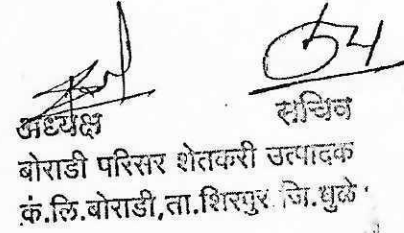 अध्यक्ष सचिव
बोराडी परिसर शेतकरी उत्पादक
कं.लि.बोराडी,ता.शिरपुर जि.धुळे